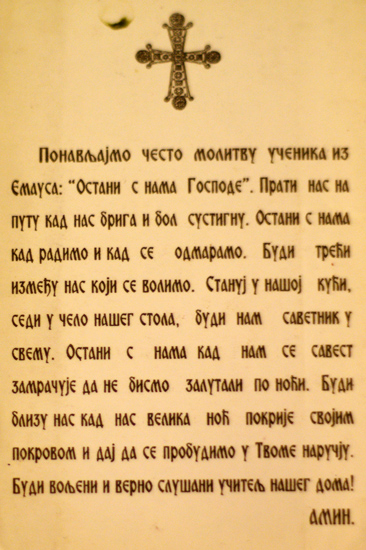 Понављајмо често молитву ученика из
Емауса: "Остани с нама Господе". Прати нас на
путу кад нас брига и бол сустигну. Остани с нама
кад радимо и кад се одмарамо. Буди трећи
између нас који се волимо. Стануј у нашој кући,
седи у чело нашег стола, буди нам саветник у
свему. Остани с нама кад нам се савест
замрачује да не бисмо залутали по ноћи. Буди
близу нас кад нас велика ноћ покрије својим
покровом и дај да се пробудимо у Твоме наручју.
Буди вољени и верно слушани учитељ нашег дома!
АМИН.